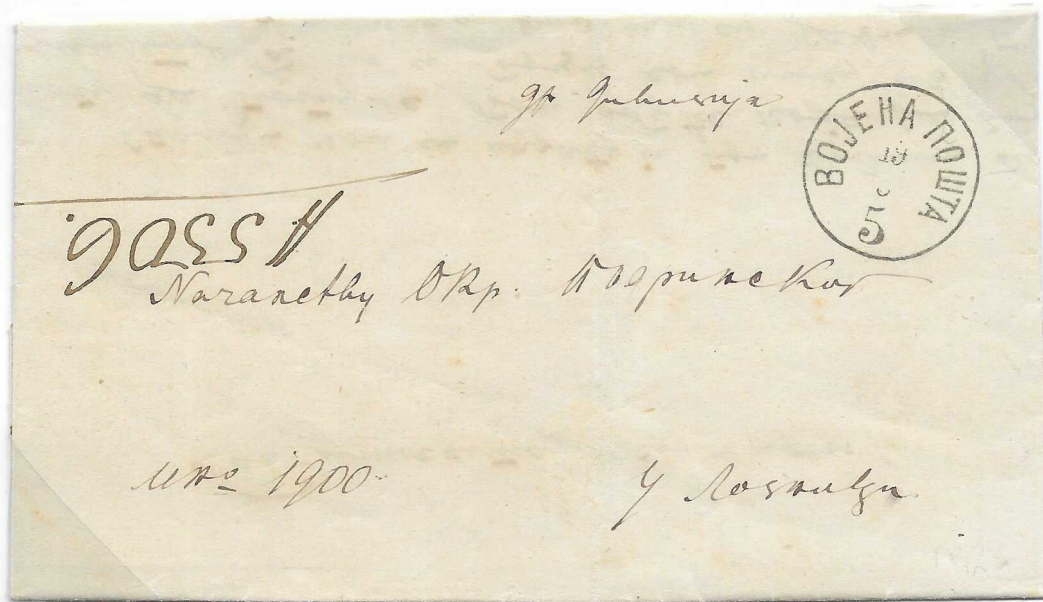 др дивизија
ВОЈЕНА ПОШТА
19
5
А 5306.
Начелству Окр. Подринског
1900
У Лозници